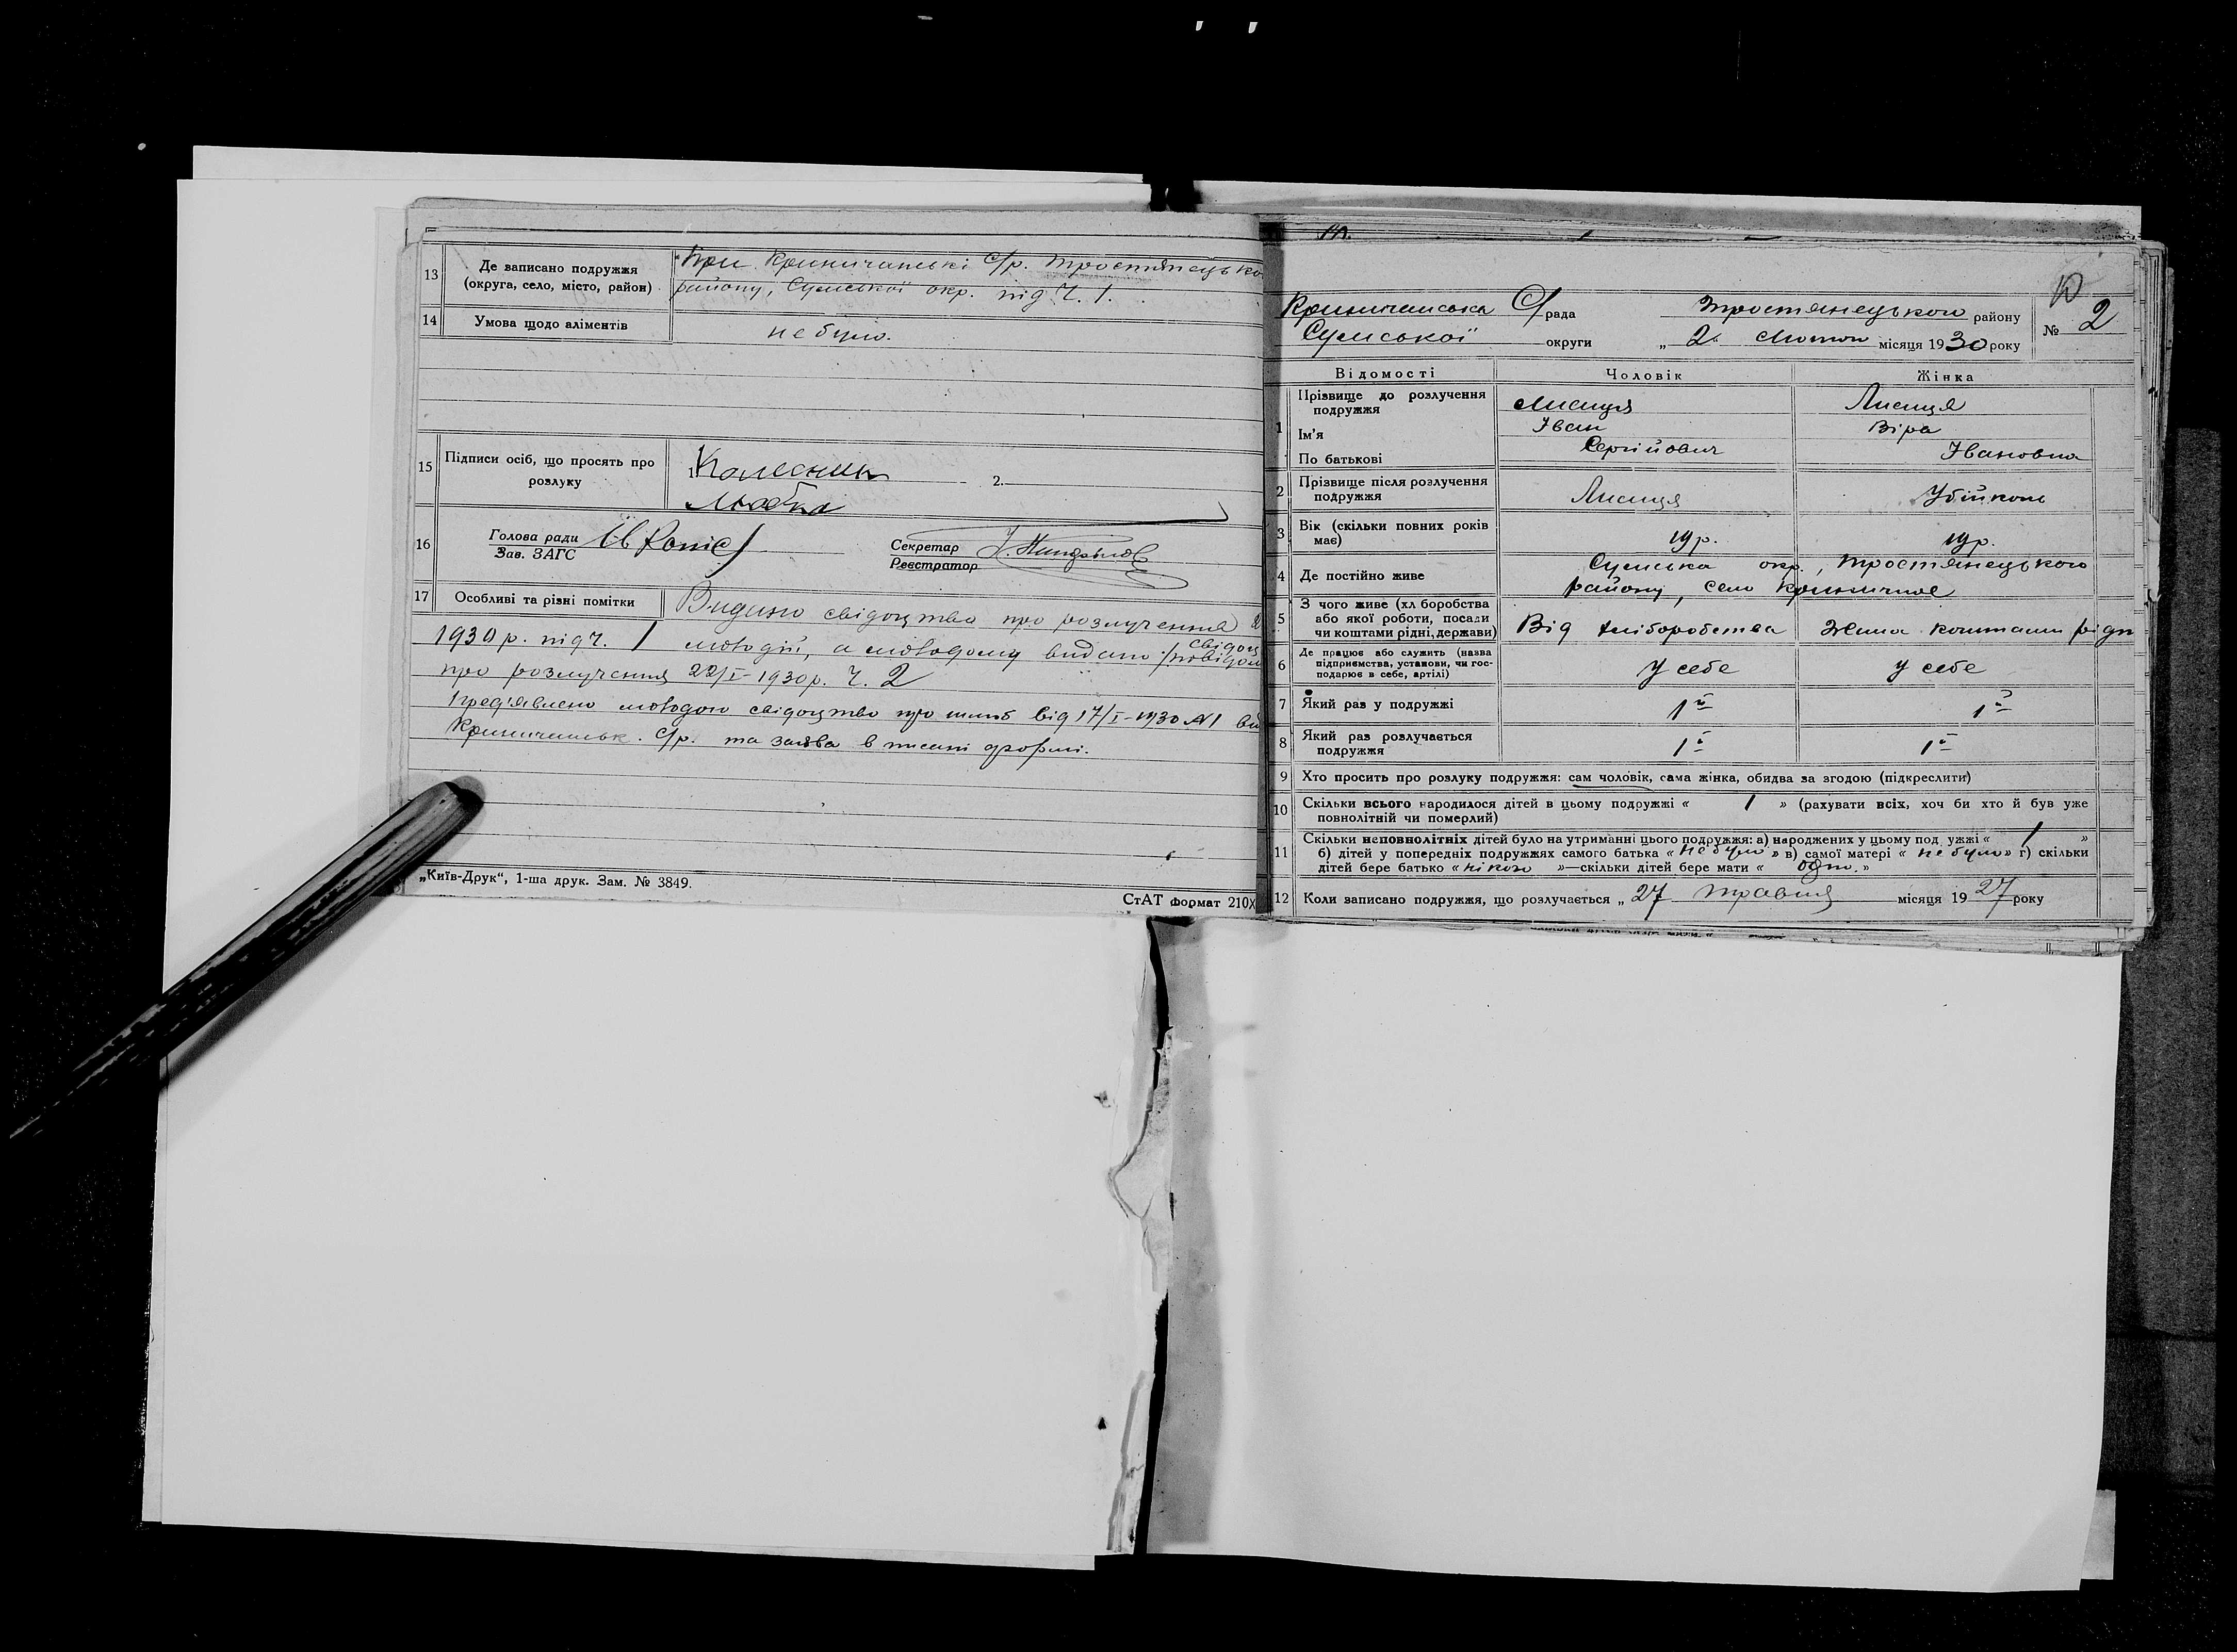 13 Де записано подружжя (округа, село, місто, район)
При Криничанські С/р. Тростянецько
району, Сумської окр. під Ч. 1.
14 Умова щодо аліментів не було.
15 Підписи осіб, що просять про розлуку
1. Колесник 2.
Любка
16 Голова ради
Зав. ЗАГС
Секретар
Реєстратор
17 Особливі та різні помітки Видано свідоцтво про розлучення
1930 р. під ч. 1 молодій, а молодому видано свідоц
про розлучення 22/I-1930 р. Ч. 2
Пред'явлено молодою свідоцтво про шлюб від 17/I-1930 №1 ви
Криничанськ. С/р. та заява в писані формі.
„Київ-Друк“, 1-ша друк. Зам. № 3849.
СтАТ формат 210х
10
Криничанська С/рада Тростянецького району
№ 2
Сумської округи „ 2 лютого місяця 1930 року
Відомості Чоловік Жінка
1 Прізвище до розлучення подружжя Лисиця Лисиця
Ім'я Іван Віра
По батькові Сергійович Івановна
2 Прізвище після розлучення подружжя Лисиця Убійконь
3 Вік (скільки повних років має) 19 р. 19 р.
4 Де постійно живе Сумська окр., Тростянецького
району, село Криничне
5 З чого живе (хліборобства
або якої роботи, посади
чи коштами рідні, держави)
Від хліборобства Жила коштами рідн
6 Де працює або служить (назва
підприємства, установи, чи гос-
подарює в себе, артілі)
у себе у себе
7 Який раз у подружжі 1й 1й
8 Який раз розлучається
подружжя 1й 1й
9 Хто просить про розлуку подружжя: сам чоловік, сама жінка, обидва за згодою (підкреслити)
10 Скільки всього народилося дітей в цьому подружжі « 1 » (рахувати всіх, хоч би хто й був уже
повнолітній чи померлий)
11 Скільки неповнолітніх дітей було на утриманні цього подружжя: а) народжених у цьому подружжі « 1 »
б) дітей у попередніх подружжях самого батька « не було » в) самої матері « не було » г) скільки
дітей бере батько « нікого »—скільки дітей бере мати « одно. »
12 Коли записано подружжя, що розлучається „ 27 травня місяця 1927 року